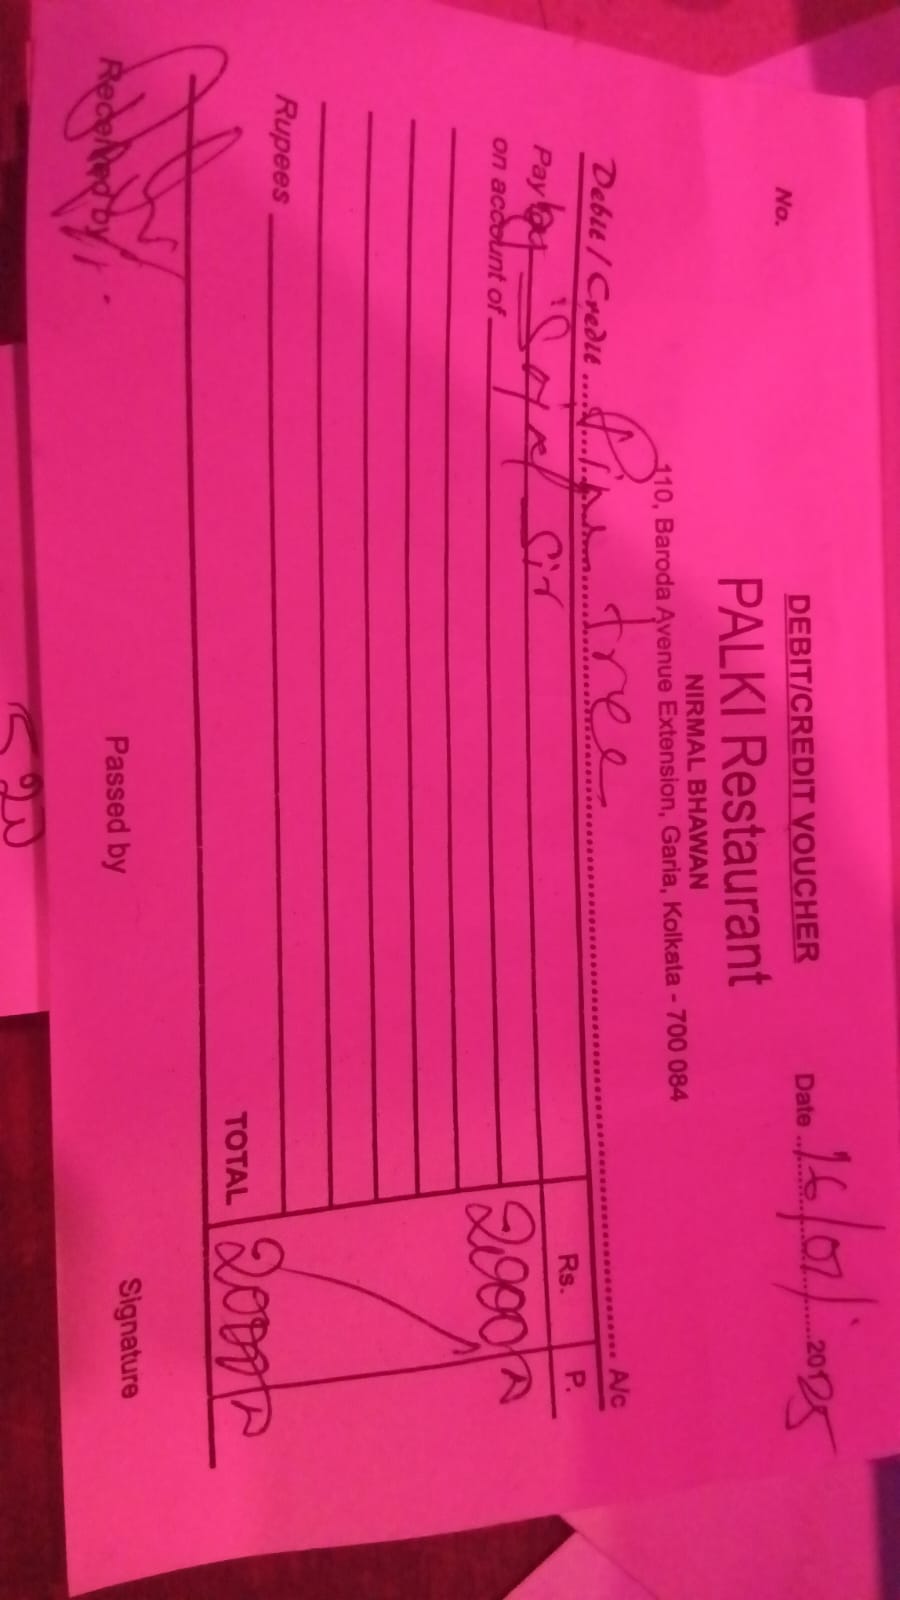 DEBIT/CREDIT VOUCHER
No.
Date 16/07/2025
PALKI Restaurant
NIRMAL BHAWAN
110, Baroda Avenue Extension, Garia, Kolkata - 700 084
Debit / Credit ........ tree ........ A/c
Rs. P.
Pay to Sir
on account of 20000
Rupees
TOTAL 20000
Received by
Passed by
Signature